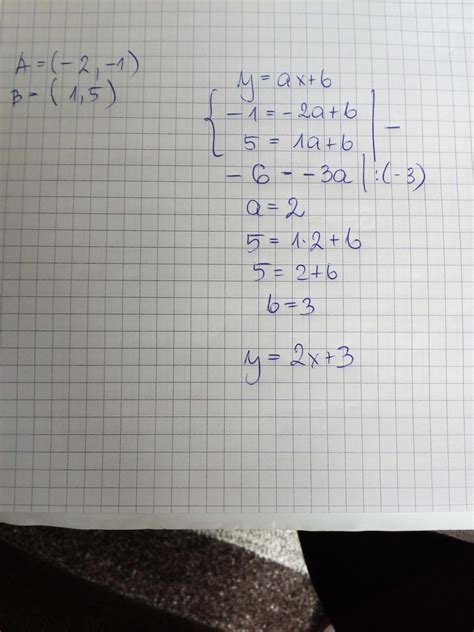 A = (-2, -1)
B = (1, 5)
y = ax + b
{ -1 = -2a + b | -
5 = 1a + b
-6 - -3a | :(-3)
a = 2
5 = 1·2 + b
5 = 2 + b
b = 3
y = 2x + 3